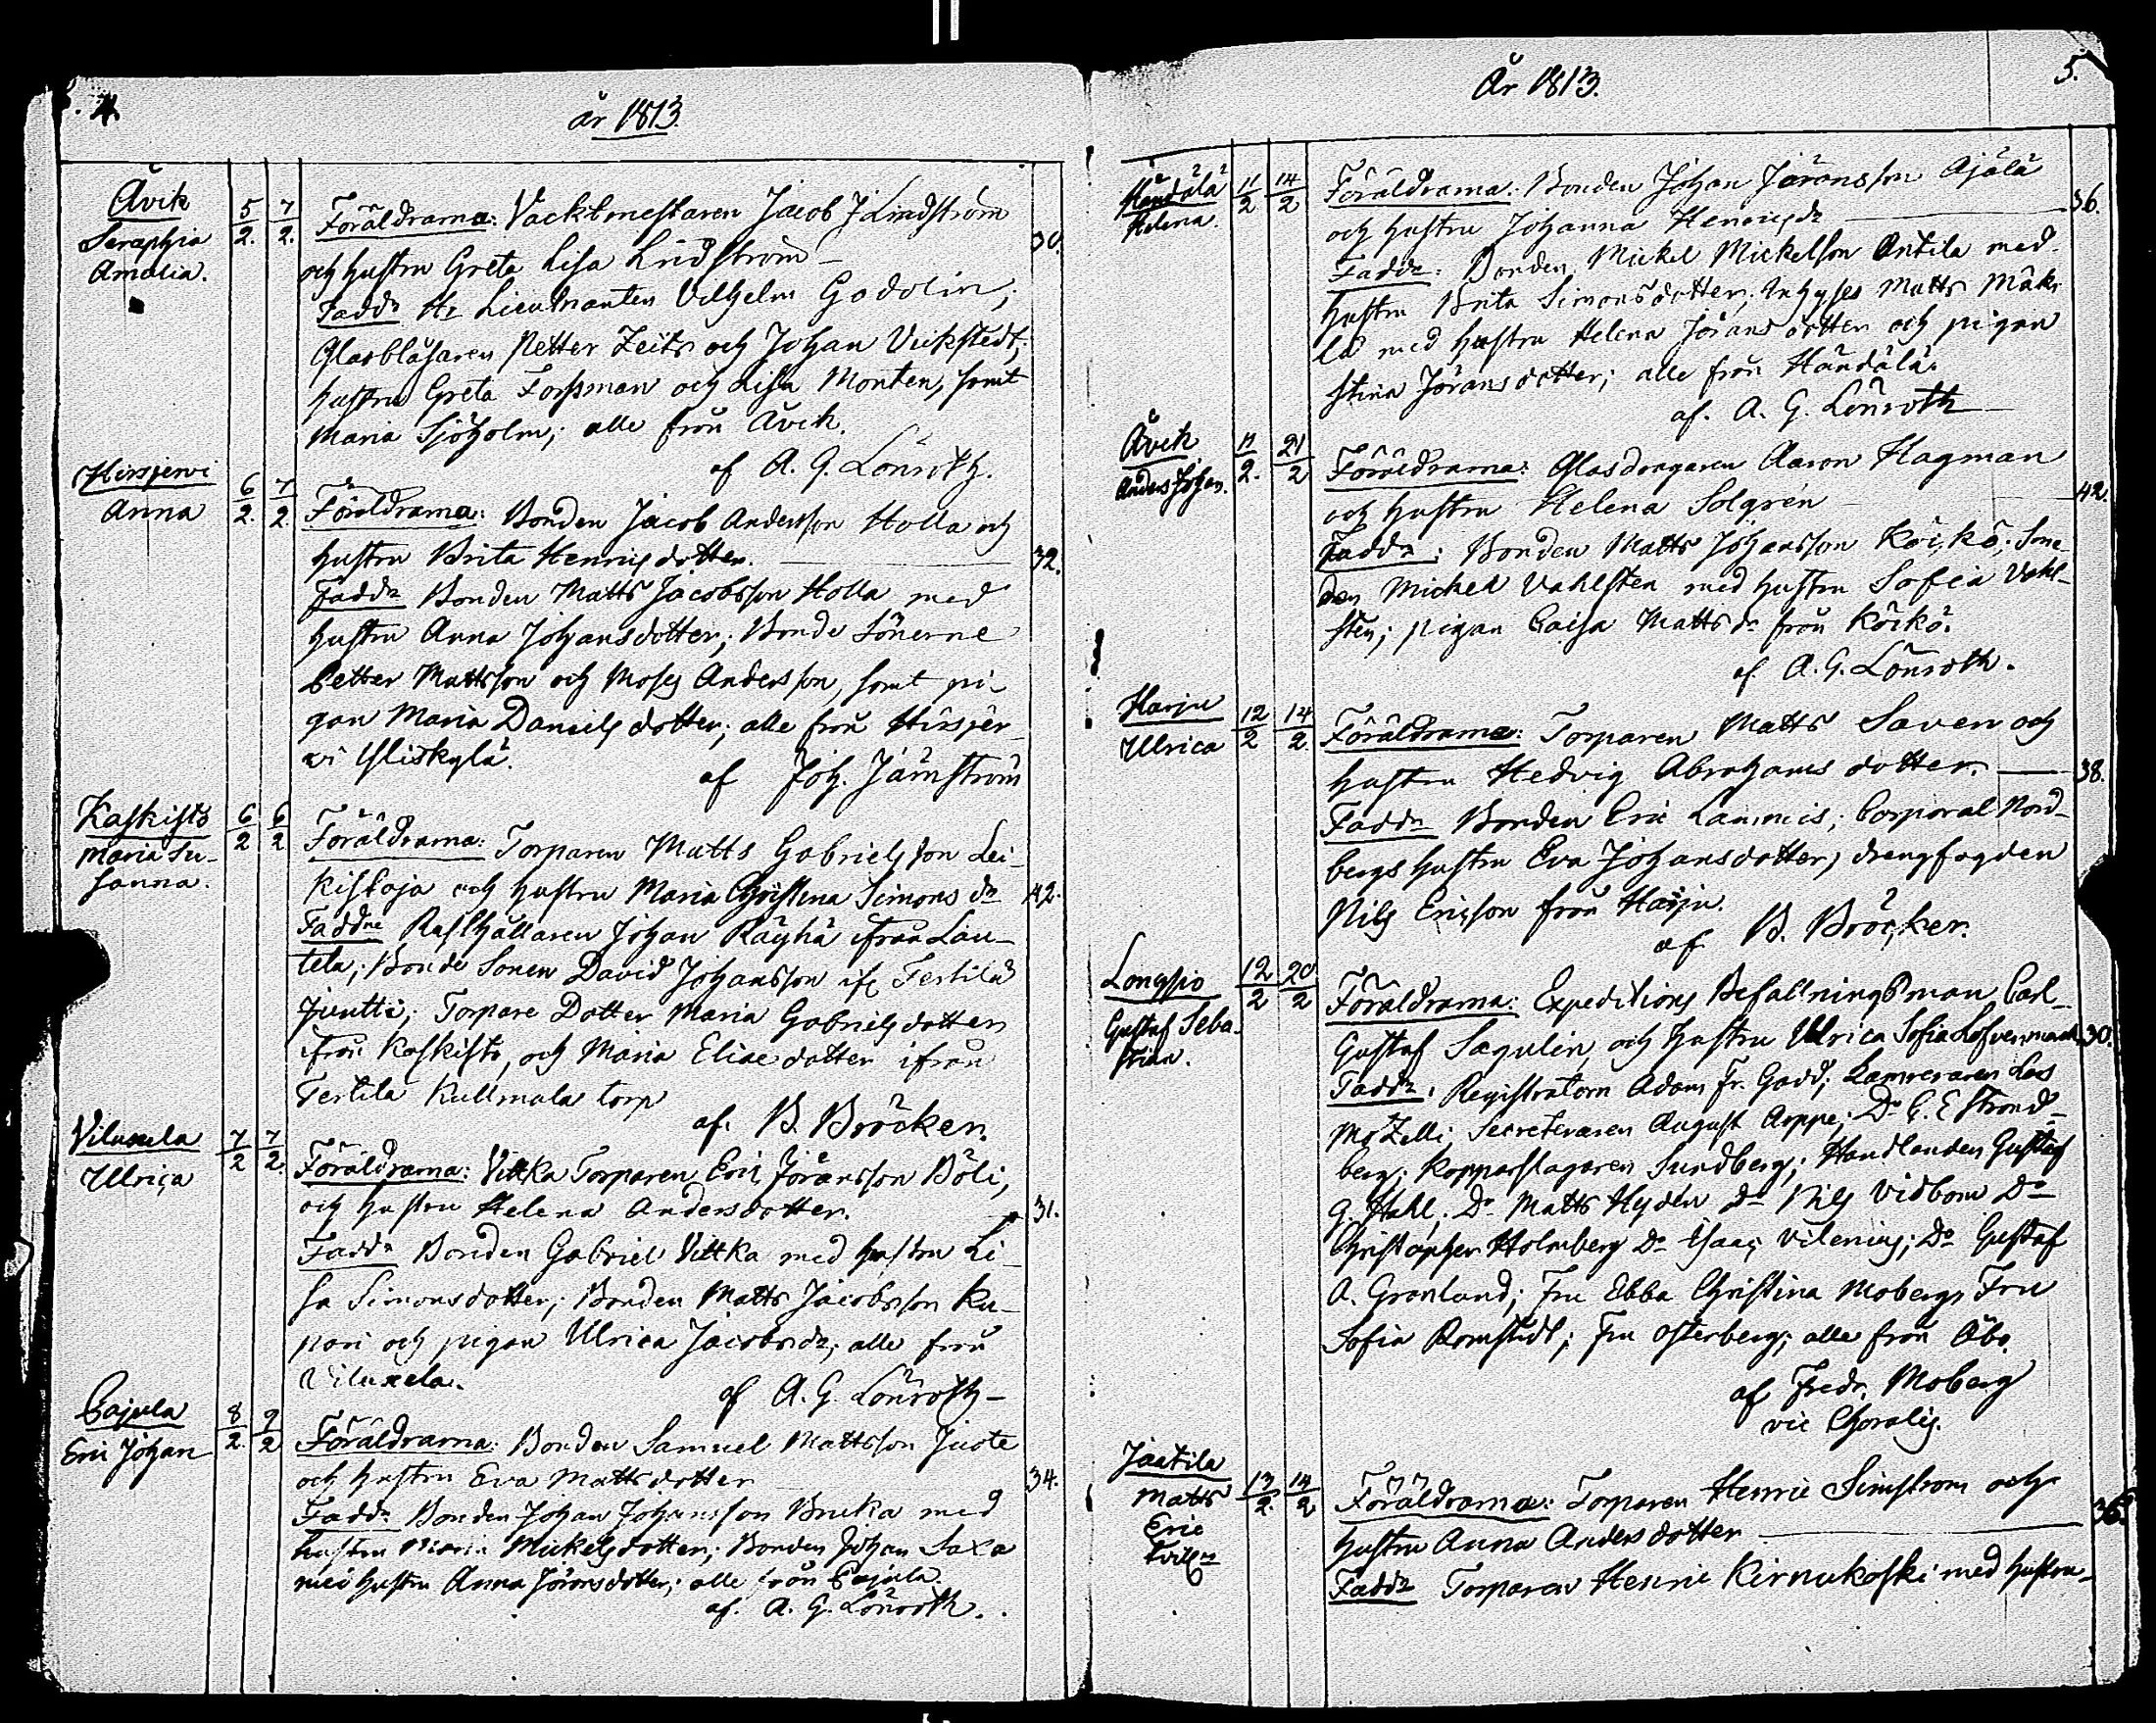 4.
år 1813.
Åvik
Seraphia
Amalia.
5/2. 7/2.
Föräldrarna: Vacktmestaren Jacob J Lindström
och hustru Greta Lisa Lindström – 30.
Faddr Hr Lieutnanten Vilhelm Godolin;
Glasblåsaren Petter Zeitz och Johan Vickstedt;
hustru Greta Forssman och Lisa Monten, samt
Maria Sjöholm; alle från Åvik.
af A. G. Lönroth.
Hirsjervi
Anna
6/2. 7/2.
Föräldrarna: Bonden Jacob Andersson Holla och
hustru Brita Henricsdotter. 32.
Faddr Bonden Matts Jacobsson Holla med
hustru Anna Johansdotter; Bonde Sönerne
Petter Mattsson och Moses Andersson, samt pi-
gan Maria Danielsdotter; alle från Hirsjer-
vi Yliskylä.
af Joh. Jämström
Kaskisto
Maria Su-
sanna.
6/2 6/2
Föräldrarna: Torparen Matts Gabrielsson Lei-
kkistoja och hustru Maria Christina Simons dr 42.
Faddrne Rusthållaren Johan Räyhä ifrån Lau-
tela; Bonde Sonen David Johansson if Tertilä
Juutti; Torpare Dotter Maria Gabrielsdotter
ifrån Kaskisto, och Maria Eliae dotter ifrån
Tertilä Kullmala torp
af. B. Bröcker.
Viluxela
Ulrica
7/2 7/2.
Föräldrarna: Vittka Torparen Eric Jöransson Böli,
och hustru Helena Andersdotter. 31.
Faddr Bonden Gabriel Vittka med hustru Li-
sa Simonsdotter; Bonden Matts Jacobsson Ku-
pari och pigan Ulrica Jacobsdr; alle från
Viluxela.
af A. G. Lönroth –
Cajula
Eric Johan
8/2. 9/2
Föräldrarna: Bonden Samuel Mattsson Juote
och hustru Eva Mattsdotter 34.
Faddr Bonden Johan Johansson Bruka med
hustru Maria Mickelsdotter; Bonden Johan Saxa
med hustru Anna Jöransdotter; alle från Cajula.
af. A. G. Lönroth.
År 1813.
5.
Händälä
Helena.
11/2 14/2
Föräldrarna: Bonden Johan Jöransson Ajälä
och hustru Johanna Henricsdr 36.
Faddr: Bonden Mickel Mickelson Antila med
hustru Brita Simonsdotter; Inhyses Matts Mäki
lä med hustru Helena Jöransdotter och pigan
Stina Jöransdotter; alle från Händälä.
af. A. G. Lönroth
Åvik
Anders Johan.
11/2. 21/2
Föräldrarna: Glasdragaren Aaron Hagman
och hustru Helena Solgrén 42.
Faddr: Bonden Matts Johansson Köikö; Sme-
den Michel Vahlsten med hustru Sofia Vahl-
sten; pigan Caisa Mattsdr från Köikö.
af. A. G. Lönroth.
Harju
Ulrica
12/2 14/2.
Föräldrarna: Torparen Matts Saven och
hustru Hedvig Abrahams dotter. 38.
Faddr Bonden Eric Lammis; Corporal Nord-
bergs hustru Eva Johansdotter; drengfogden
Nils Ericson från Harju.
af B. Bröcker.
Longsjo
Gustaf Seba-
stian.
12/2 20/2
Föräldrarna: Expeditions Befallningsman Carl
Gustaf Sagulin och hustru Ulrica Sofia Löfvenmark 30.
Faddr: Registratorn Adam Fr. Gadd; Kamreraren
Mozelli Secreteraren August Aoppe; Do C. E Strand-
berg; Kopparslagaren Sundberg; Handlanden Gustaf
G. Stahl; Do Matts Hydén Do Nils Vidbom Do
Christopher Holmberg Do Isaac Vilenius; Do Gustaf
A. Granlund; Fru Ebba Christina Moberg, Fru
Sofia Romstedt; Fru Osterberg; alle från Åbo.
af Fredr. Moberg
vic Choralis.
Jaatila
Matts
Eric
13/2. 14/2
Föräldrarna: Torparen Henric Simstrom och
hustru Anna Andersdotter 36.
Faddr Torparen Henric Kirnukoski med hustru